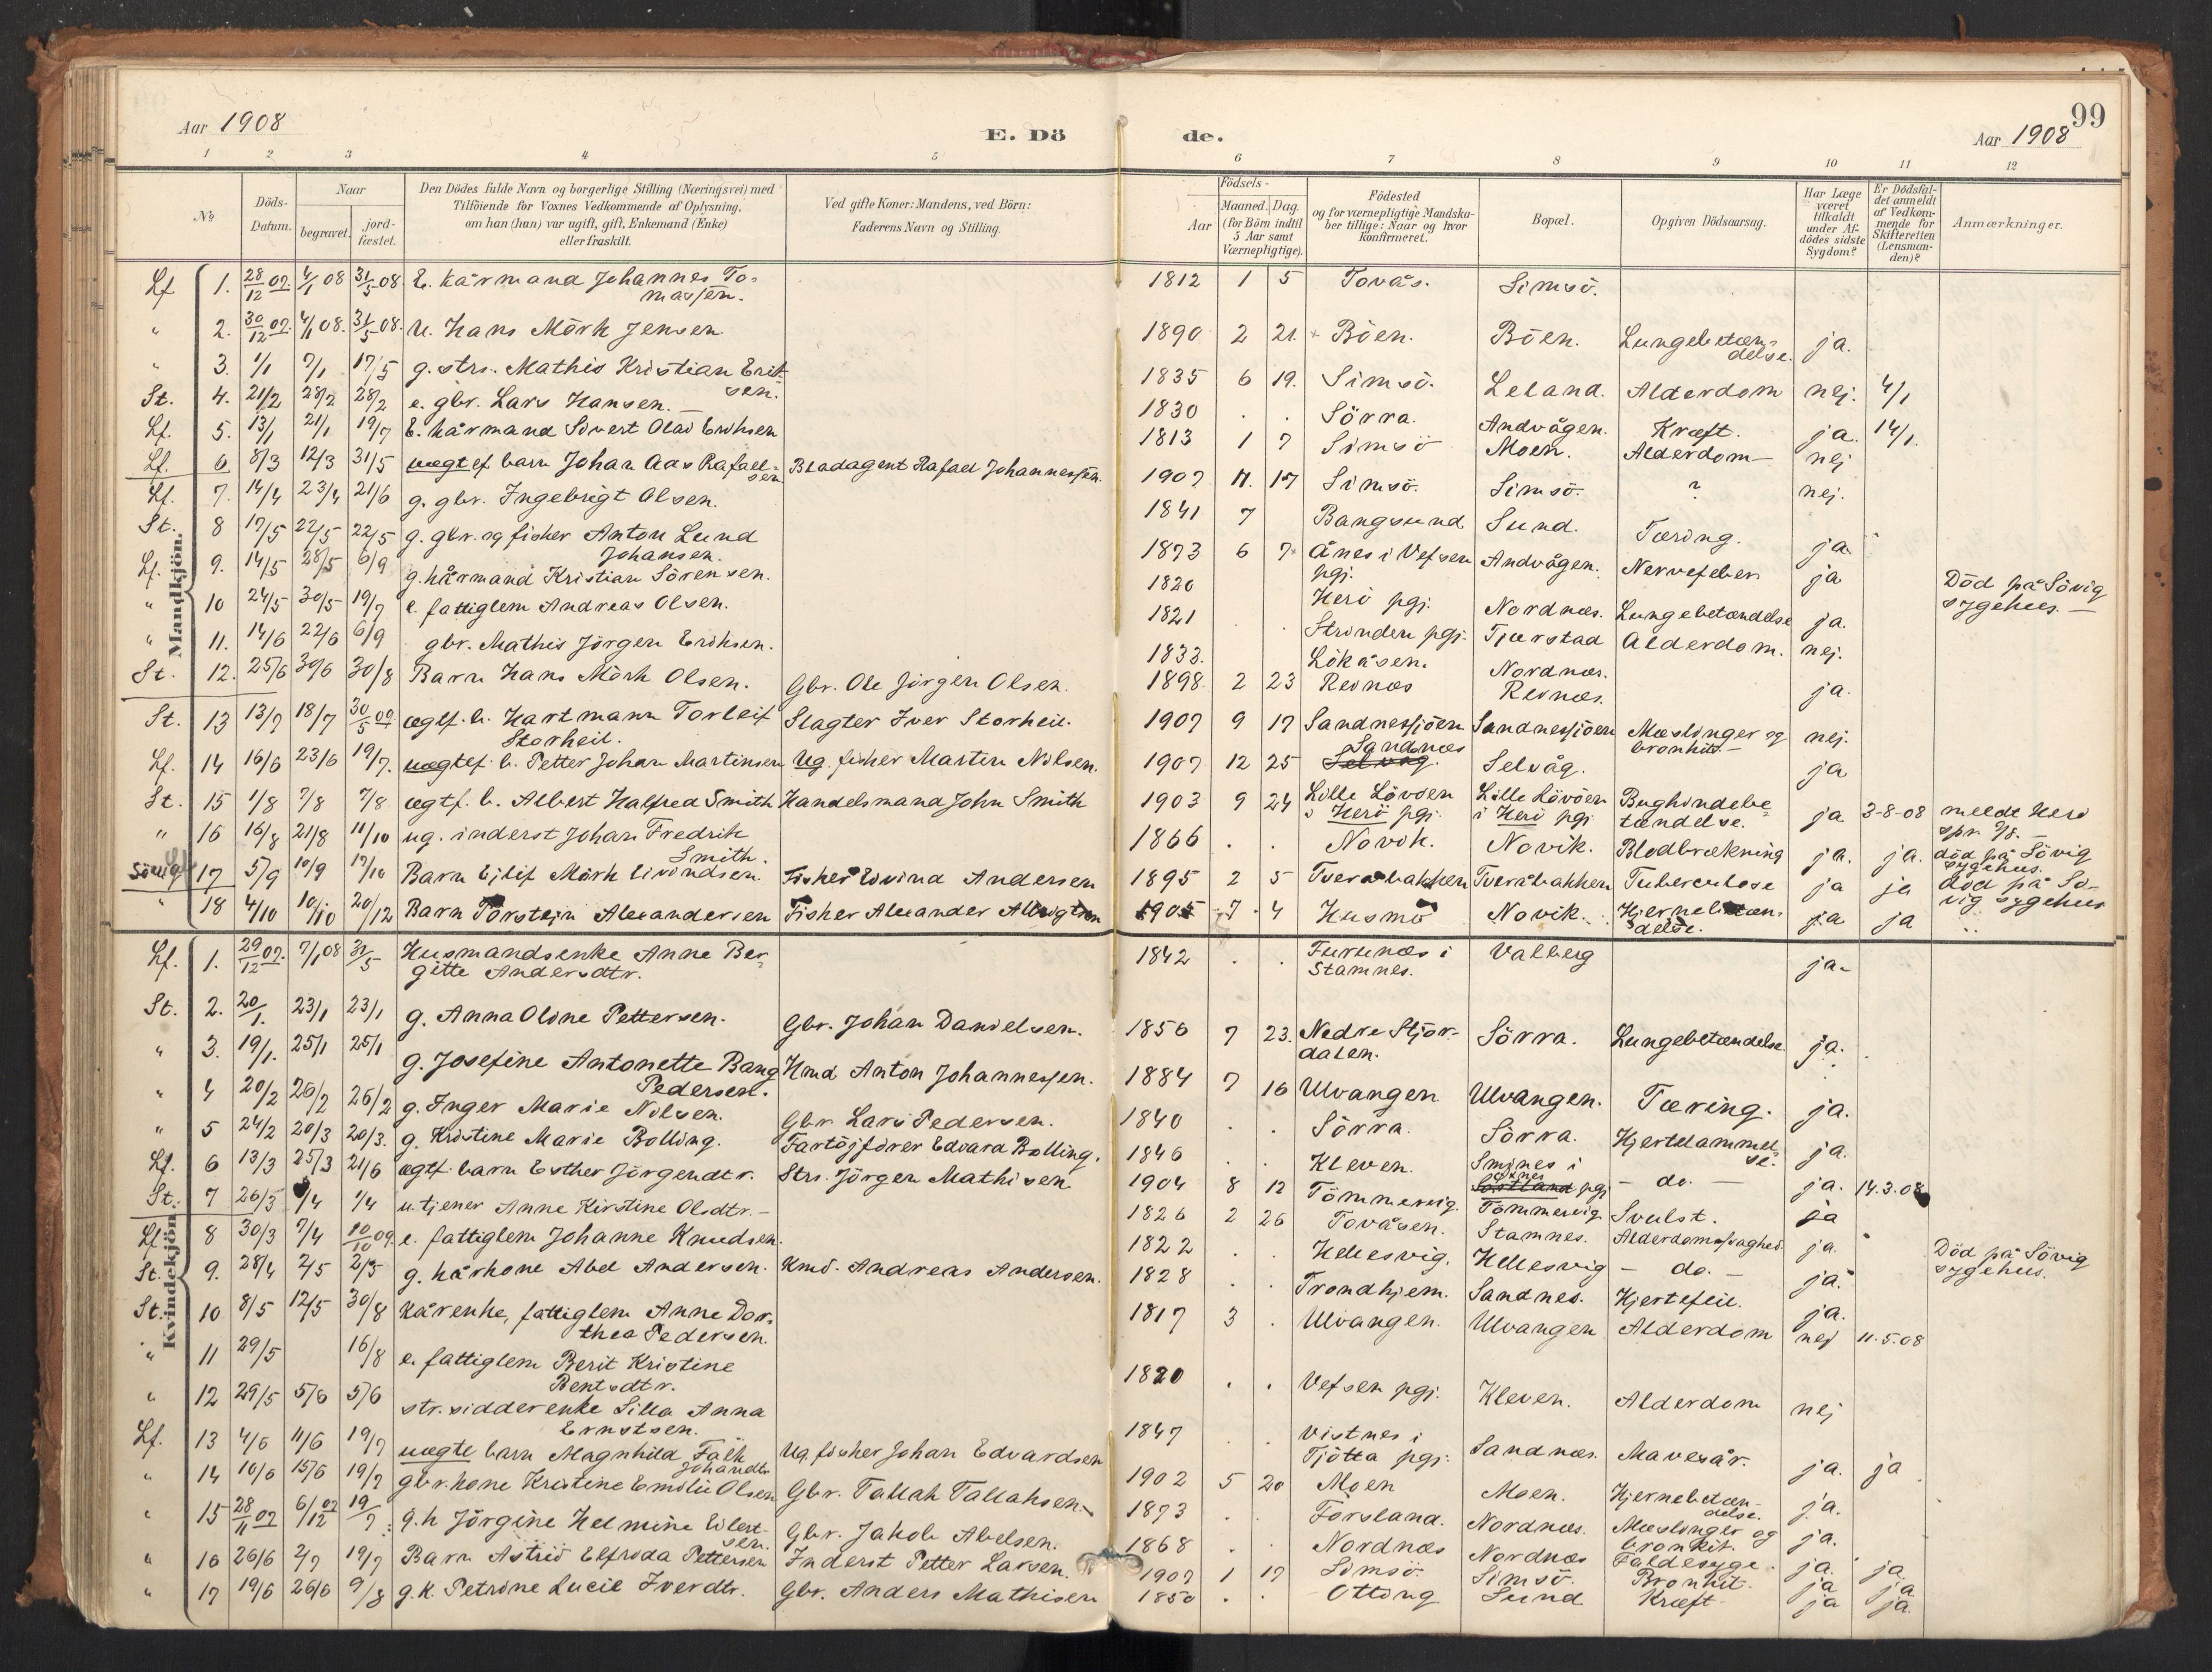 Aar 1908
E. Dö
de.
Aar 1908
99
1 2 3 4 5 6 7 8 9 10 11 12
№
Döds-
Datum.
Naar
begravet.
jord-
fæstet.
Den Dödes fulde Navn og borgerlige Stilling (Næringsvei) med
Tilföiende for Voxnes Vedkommende af Oplysning,
om han (hun) var ugift, gift, Enkemand (Enke)
eller fraskilt.
Ved gifte Koner: Mandens, ved Börn:
Faderens Navn og Stilling.
Födsels-
Aar
Maaned. Dag.
(for Börn indtil
5 Aar samt
Værnepligtige).
Födested
og for værnepligtige Mandska-
ber tillige: Naar og hvor
Konfirmeret.
Bopæl.
Opgiven Dödsaarsag.
Har Læge
været
tilkaldt
under Af-
dödes sidste
Sygdom?
Er Dödsfal-
det anmeldt
af Vedkom-
mende for
Skifteretten
(Lensman-
den)?
Anmærkninger.
Mandkjön.
Lf 1. 28/12 07. 4/1 08 31/5 08. E. kårmand Johannes To-
massen. 1812 1 5 Tovås. Simsö.
" 2. 30/12 07. 4/1 08. 31/5 08. U. Hans Mörk Jensen 1890 2 21. Böen. Böen. Lungebetæn-
delse. ja.
" 3. 1/1 7/1 17/5 g. strs. Mathis Kristian Erik-
sen. 1835 6 19. Simsö. Leland. Alderdom nej. 4/1
St. 4. 21/2 28/2 28/2 e. gbr. Lars Hansen. 1830 . . Sörra. Andvågen. Kræft. ja. 14/1.
Lf. 5. 13/1 21/1 19/7 E. kårmand Sivert Olai Eriksen 1813 1 7 Simsö Moen. Alderdom— nej
Lf. 6 8/3 12/3 31/5 uægtef barn Johan Aas Rafael-
sen Bladagent Rafael Johannessen. 1907 11. 17 Simsö. Simsö. ? nej.
Lf. 7. 14/4 23/4 21/6 g. gbr. Ingebrigt Olsen. 1841 7 Bangsund Sund. Tæring. ja
St. 8 17/5 22/5 22/5 g. gbr. og fisker Anton Lund
Johansen. 1873 6 7 Ånes i Vefsen
pgj. Andvågen. Nervefeber ja
Lf. 9. 14/5 28/5 6/9 g. kårmand Kristian Sörensen. 1820 Herö pgj. Nordnæs. Lungebetændelse ja. Död på Sövig
sygehus.—
" 10 24/5 30/5 19/7 e. fattiglem Andreas Olsen. 1821 . . Strinden pgj. Tjærstad Alderdom. nej.
" 11. 14/6 22/6 6/9 gbr. Mathis Jörgen Eriksen. 1833. Lökåsen. Nordnæs.
St. 12. 25/6 30/6 30/8 Barn Hans Mörk Olsen. Gbr. Ole Jörgen Olsen. 1898 2 23 Reinæs Reinæs. ja.
St. 13 13/7 18/7 30/5 09. ægtf. b. Hartmann Torleif
Storheil. Slagter Iver Storheil. 1907 9 17 Sandnessjöen Sandnessjöen Mæslinger og
bronkit— nej.
Lf. 14 16/6 23/6 19/7. uægtef. b. Petter Johan Martinsen Ug. fisker Martin Nilsen. 1907 12 25 Sandnæs
Selvåg. Selvåg. ja
St. 15 1/8 7/8 7/8 ægtf. b. Albert Halfred Smith Handelsmand John Smith 1903 9 24 Lille Lövöen
i Herö pgj. Lille Lövöen
i Herö pgj Bughindebe-
tændelse. ja 3-8-08 meldt Herö
spr. 7/8.—
" 16 16/8 21/8 11/10 ug. inderst Johan Fredrik
Smith. 1866 . . Novik. Novik. Blodbrækning ja. ja. död på Sövig
sygehus.
Sövig Lf 17 5/9 10/9 17/10 Barn Ejlif Mörk Eivindsen. Fisker Eivind Andersen 1895 2 5 Tveråbakken Tveråbakken Tuberculose ja ja död på Sö-
vig sygehus
" 18 4/10 10/10 20/12 Barn Torstein Alexandersen Fisker Alexander Albrigtsen 1905 7 4 Husmo Novik. Hjernebetæn-
delse. ja ja "
Kvindekjön.
Lf. 1. 29/12 07. 7/1 08 31/5 Husmandsenke Anne Ber-
gitte Andersdtr. 1842 . . Furunæs i
Stamnes. Valberg ja-
St. 2. 20/1. 23/1 23/1 g. Anna Oline Pettersen. Gbr. Johan Danielsen. 1856 7 23. Nedre Stjör-
dalen. Sörra. Lungebetændelse ja.
" 3. 19/1. 25/1 25/1 g. Josefine Antonette Bang
Pedersen. Hmd Anton Johannessen. 1884 7 16 Ulvangen Ulvangen. Tæring. ja.
" 4 20/2 26/2 26/2 g. Inger Marie Nilsen. Gbr. Lars Pedersen. 1840 . . Sörra. Sörra. Hjertelammel-
se. ja.
" 5 24/2 20/3 20/3. g. Kristine Marie Bolling. Fartöjförer Edvard Bolling. 1846 . . Kleven. Smines i
pgj — do. — ja. 14.3.08
Lf. 6 13/3 25/3 21/6 ægtf. barn Esther Jörgendtr. Strs. Jörgen Mathisen 1904 8 12 Tömmervig. Tömmervig Svulst. ja
St. 7 26/3 1/4 1/4 u. tjener Anne Kirstine Olsdtr.— 1826 2 26 Tovåsen. Stamnes. Alderdomssvaghed. ja.
Lf 8 30/3 7/4 10/10 09. e. fattiglem Johanne Knudsen. 1822 . . Hellesvig. Hellesvig — do. — ja. Död på Sövig
sygehus.
St. 9. 28/4 2/5 2/5 g. kårkone Abel Andersen. Kmd. Andreas Andersen. 1828 . . Trondhjem. Sandnes. Hjertefeil. ja.
St. 10. 8/5 12/5 30/8 Kårenke, fattiglem Anne Dor-
thea Pedersen. 1817 3 . Ulvangen. Ulvangen Alderdom nej 11.5.08
" 11 29/5 16/8 e. fattiglem Berit Kristine
Bentsdtr. 1820 . . Vefsen pgj. Kleven. Alderdom nej
" 12 29/5 5/6 5/6 str. sidderenke Silla Anna
Ernstsen. 1847 . . Vistnes i
Tjötta pgj. Sandnæs. Mavesår. ja. ja
Lf. 13 4/6 11/6 19/7 uægte barn Magnhild Falk
Johandtr Ug. fisker Johan Edvardsen 1902 5 20 Moen Moen. Hjernebetæn-
delse. ja.
" 14 10/6 15/6 19/7 gbr. kone Kristine Emilie Olsen Gbr. Tallak Tallaksen. 1873 . . Forsland. Nordnæs. Mæslinger og
bronkit. ja.
" 15 28/11 07 6/12 07 19/7 g. k Jörgine Helmine Eilert-
sen. Gbr. Jakob Abelsen. 1868 . . Nordnæs Nordnæs Faldesyge. ja. ja.
" 16 26/6 2/7 19/7 Barn Astrid Elfrida Pettersen Inderst Petter Larsen. 1907 1 17 Simsö. Simsö. Bronkit. ja ja
" 17 19/6 26/6 9/8 g. k. Petrine Lucie Iverdtr. Gbr. Anders Mathisen 1850 . . Otting Sund Kræft ja ja.